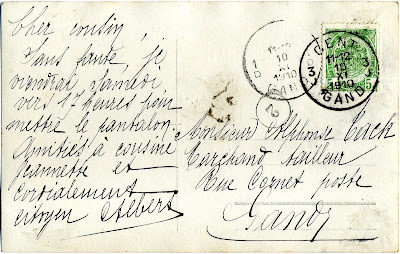 Cher cousin,
Sans faute, je
viendrai Samedi
vers 17 heures pour
mettre le pantalon.
Amitiés à cousine
Jeannette et
cordialement
citoyen Albert
11-12
10
XI
1910
GENT
11-12
10
XI
1910
GAND
Monsieur Alphonse Cack
Marchand tailleur
Rue Cornet poste
Gand